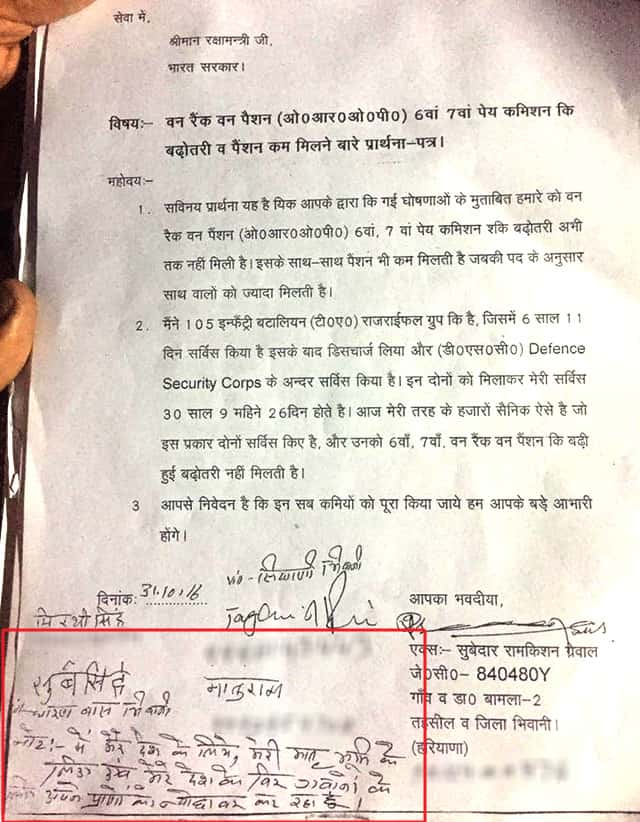 सेवा में,
श्रीमान रक्षामन्त्री जी,
भारत सरकार।
विषयः– वन रैंक वन पैशन (ओ0आर0ओ0पी0) 6वां 7वां पेय कमिशन कि
बढ़ोतरी व पैंशन कम मिलने बारे प्रार्थना–पत्र।
महोदयः–
1. सविनय प्रार्थना यह है यिक आपके द्वारा कि गई घोषणाओं के मुताबित हमारे को वन
रैक वन पैंशन (ओ0आर0ओ0पी0) 6वां, 7 वां पेय कमिशन शकि बढ़ोतरी अभी
तक नहीं मिली है। इसके साथ–साथ पैंशन भी कम मिलती है जबकी पद के अनुसार
साथ वालों को ज्यादा मिलती है।
2. मैंने 105 इन्फैंट्री बटालियन (टी0ए0) राजराईफल ग्रुप कि है, जिसमें 6 साल 11
दिन सर्विस किया है इसके याद डिसचार्ज लिया और (डी0एस0सी0) Defence
Security Corps के अन्दर सर्विस किया है। इन दोनों को मिलाकर मेरी सर्विस
30 साल 9 महिने 26दिन होते है। आज मेरी तरह के हजारों सैनिक ऐसे है जो
इस प्रकार दोनों सर्विस किए है, और उनको 6वाँ, 7वाँ, वन रैंक वन पैंशन कि बढ़ी
हुई बढ़ोतरी नहीं मिलती है।
3 आपसे निवेदन है कि इन सब कमियों को पूरा किया जाये हम आपके बड़े आभारी
होंगे।
दिनांकः 31.10.16
आपका भवदीया,
एक्सः– सुबेदार रामकिशन ग्रेवाल
जे0सी0– 840480Y
गाँव व डा0 बामला–2
तहसील व जिला भिवानी।
(हरियाणा)
नोटः– मैं मेरे देश के लिये, मेरी मातृ भूमि के
लिए एवं मेरे देश के विर जवानों के
अपने प्राणों को न्योछावर कर रहा हूँ।